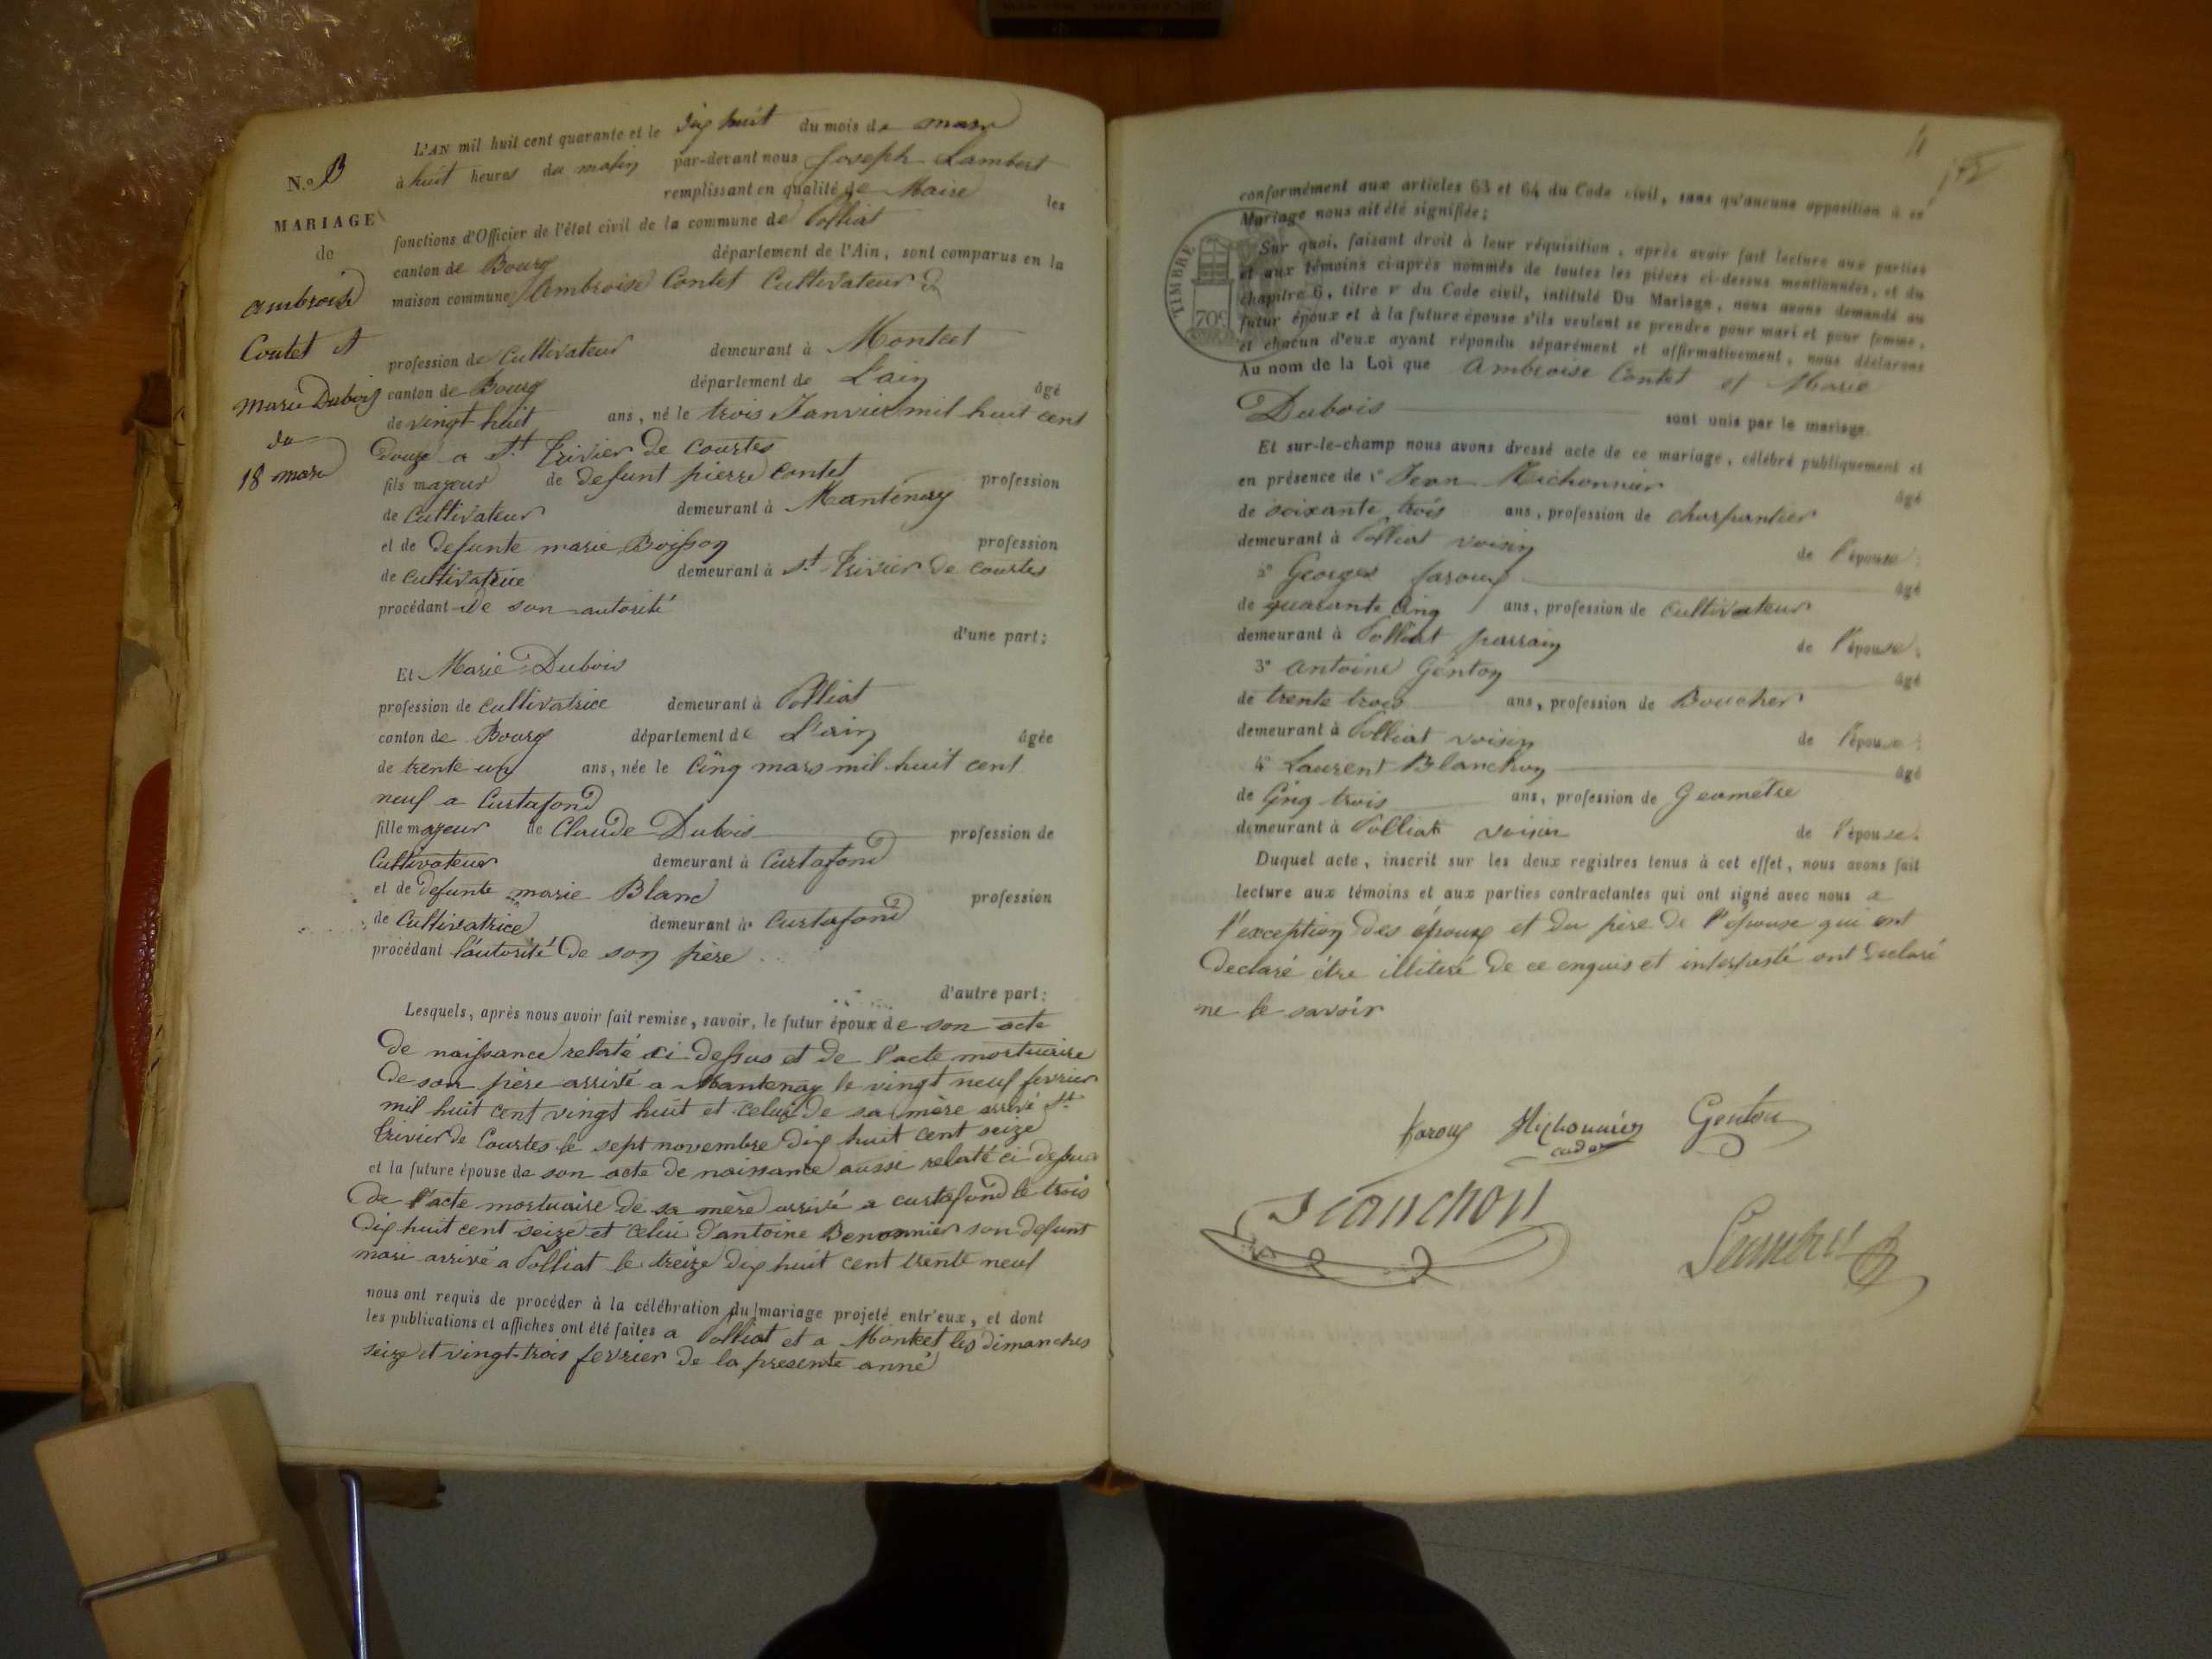 L'AN mil huit cent quarante et le dix huit du mois de mars
à huit heures du matin par-devant nous Joseph Lambert
remplissant en qualité de Maire les
fonctions d'Officier de l'état civil de la commune de Polliat
canton de Bourg département de l'Ain, sont comparus en la
maison commune Ambroise Contet Cultivateur
profession de Cultivateur demeurant à Montcet
canton de Bourg département de L'ain âgé
de vingt huit ans, né le trois Janvier mil huit cent
Douze a St Trivier De Courtes
fils majeur de defunt pierre Contet profession
de Cultivateur demeurant à Mantenay
et de defunte marie Boisson profession
de Cultivatrice demeurant à St Trivier De Courtes
procédant De son autorité
d'une part;
Et Marie Dubois
profession de Cultivatrice demeurant à Polliat
canton de Bourg département de L'ain âgée
de trente un ans, née le Cinq mars mil huit cent
neuf a Curtafond
fille majeur de Claude Dubois profession de
Cultivateur demeurant à Curtafond
et de Defunte marie Blanc profession
de Cultivatrice demeurant à Curtafond
procédant l'autorité De son père
d'autre part:
Lesquels, après nous avoir fait remise, savoir, le futur époux de son acte
De naissance relaté ci Dessus et De l'acte mortuaire
De son père arrivé a Mantenay le vingt neuf fevrier
mil huit cent vingt huit et celui De sa mère arrivé St
Trivier De Courtes le sept novembre Dix huit cent seize
et la future épouse de son acte de naissance aussi relaté ci Dessus
De l'acte mortuaire De sa mère arrivé a curtafond le trois
Dix huit cent seize et celui D'antoine Benonnier son defunt
mari arrivé a Polliat le treize Dix huit cent trente neuf
nous ont requis de procéder à la célébration du mariage projeté entr'eux, et dont
les publications et affiches ont été faites a Polliat et a Montcet les Dimanches
seize et vingt-trois fevrier De la presente anné
N.o
MARIAGE
de
ambroise
Contet et
Marie Dubois
du
18 mars
conformément aux articles 63 et 64 du Code civil, sans qu'aucune opposition à ce
Mariage nous ait été signifiée;
Sur quoi, faisant droit à leur réquisition, après avoir fait lecture aux parties
et aux témoins ci-après nommés de toutes les pièces ci-dessus mentionnées, et du
chapitre 6, titre v du Code civil, intitulé Du Mariage, nous avons demandé au
futur époux et à la future épouse s'ils veulent se prendre pour mari et pour femme,
et chacun d'eux ayant répondu séparément et affirmativement, nous déclarons
Au nom de la Loi que Ambroise Contet et Marie
Dubois sont unis par le mariage.
Et sur-le-champ nous avons dressé acte de ce mariage, célébré publiquement et
en présence de 1° Jean Michonnier âgé
de soixante trois ans, profession de charpentier
demeurant à Polliat voisin de l'épouse;
2° Georges faroux âgé
de quarante Cinq ans, profession de Cultivateur
demeurant à Polliat parrain de l'épouse;
3° Antoine Génton âgé
de trente trois ans, profession de Boucher
demeurant à Polliat voisin de l'épouse;
4° Laurent Blanchon âgé
de Cinq trois ans, profession de Geometre
demeurant à Polliat voisin de l'épouse.
Duquel acte, inscrit sur les deux registres tenus à cet effet, nous avons fait
lecture aux témoins et aux parties contractantes qui ont signé avec nous a
l'exception Des époux et Du père De l'épouse qui ont
Declaré être illiteré De ce enquis et interpesté ont Declaré
ne le savoir
TIMBRE
70c
faroux Michonnier Genton
cadet